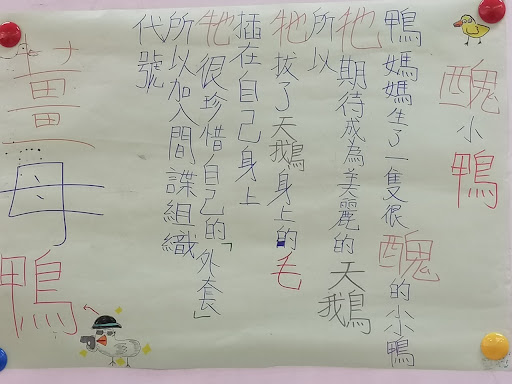 醜小鴨
鴨媽媽生了一隻很醜的小鴨
牠期待成為美麗的天鵝
所以
牠拔了天鵝身上的毛
插在自己身上
牠很珍惜自己的「外套」
所以加入間諜組織
代號
薑母鴨